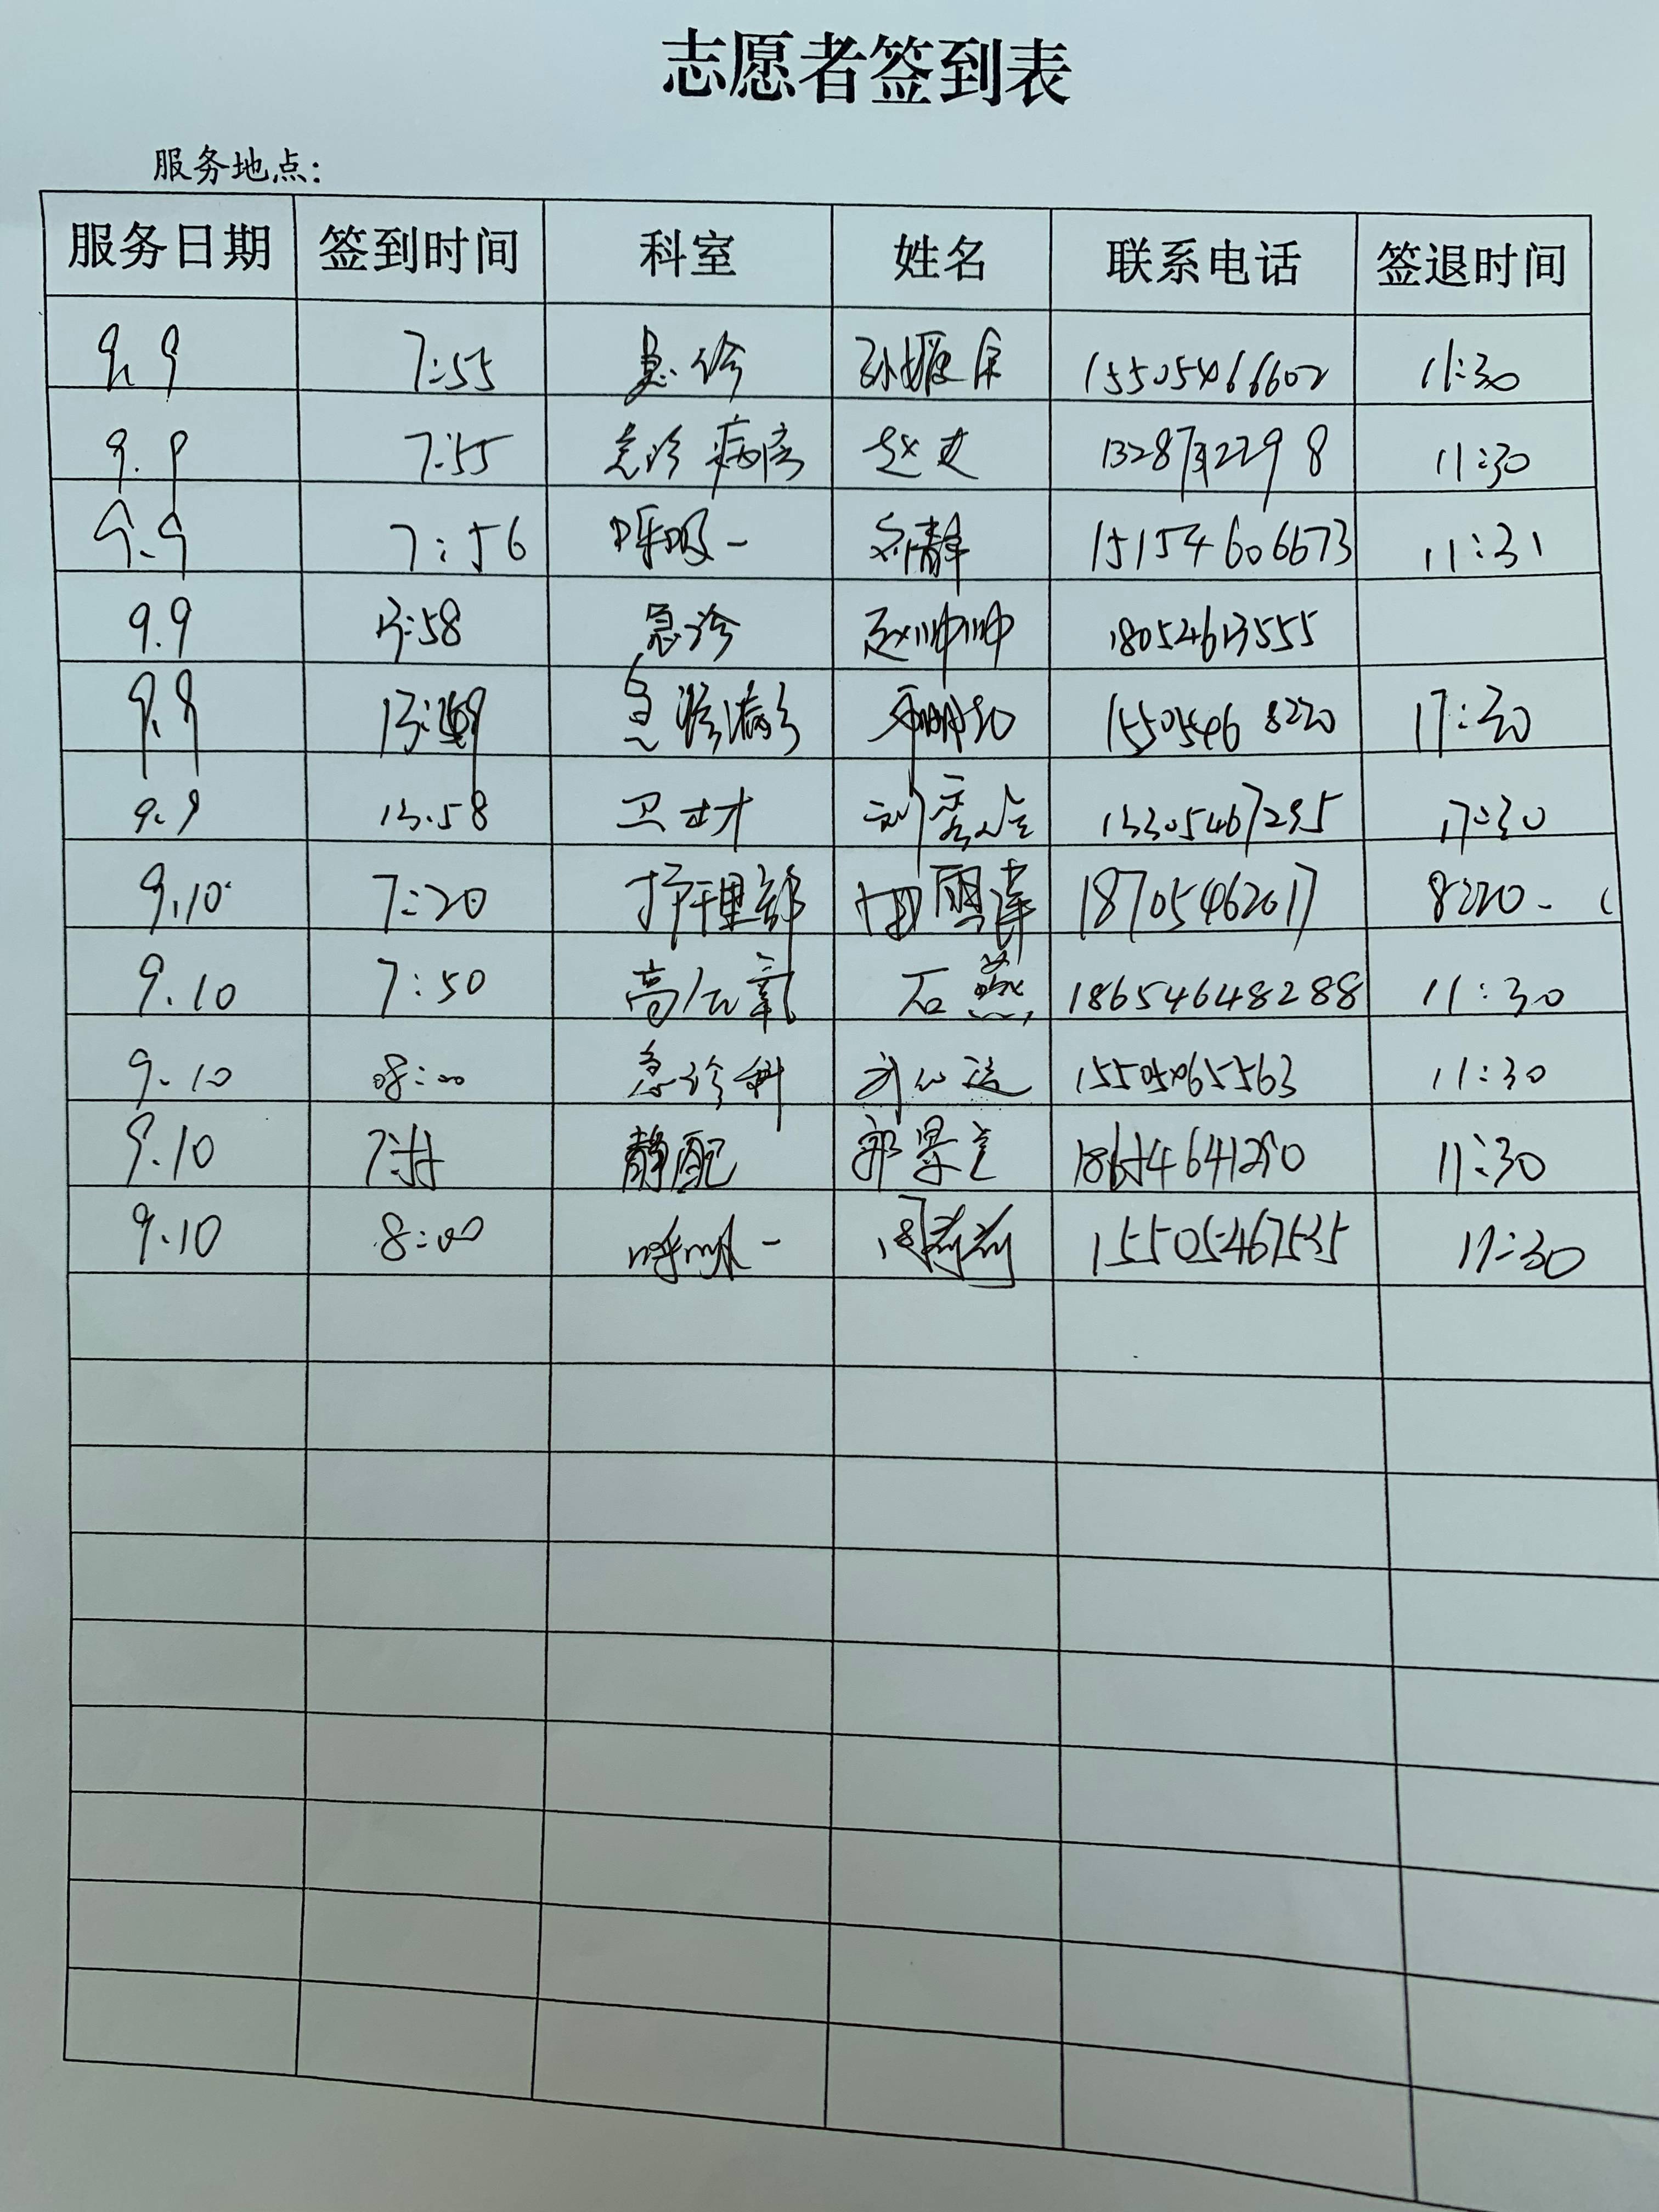 志愿者签到表
服务地点:
服务日期 签到时间 科室 姓名 联系电话 签退时间
9.9 7:55 急诊 15505466602 11:30
9.9 7:55 急诊病房 赵 11:30
9.9 7:56 呼吸一 刘静 15154606673 11:31
9.9 13:58 急诊 赵帅帅 18054613555
9.9 急诊病房 15505468220 17:30
9.9 13.58 卫材 刘秀 13305467295 17:30
9.10 7:20 护理部 田雪莲 18705462017 8220-
9.10 7:50 高压氧 石燕 18654648288 11:30
9.10 08:00 急诊科 15505465563 11:30
9.10 7:55 静配 郭景 18654641290 11:30
9.10 8:00 呼吸一 周莉莉 15505467535 17:30